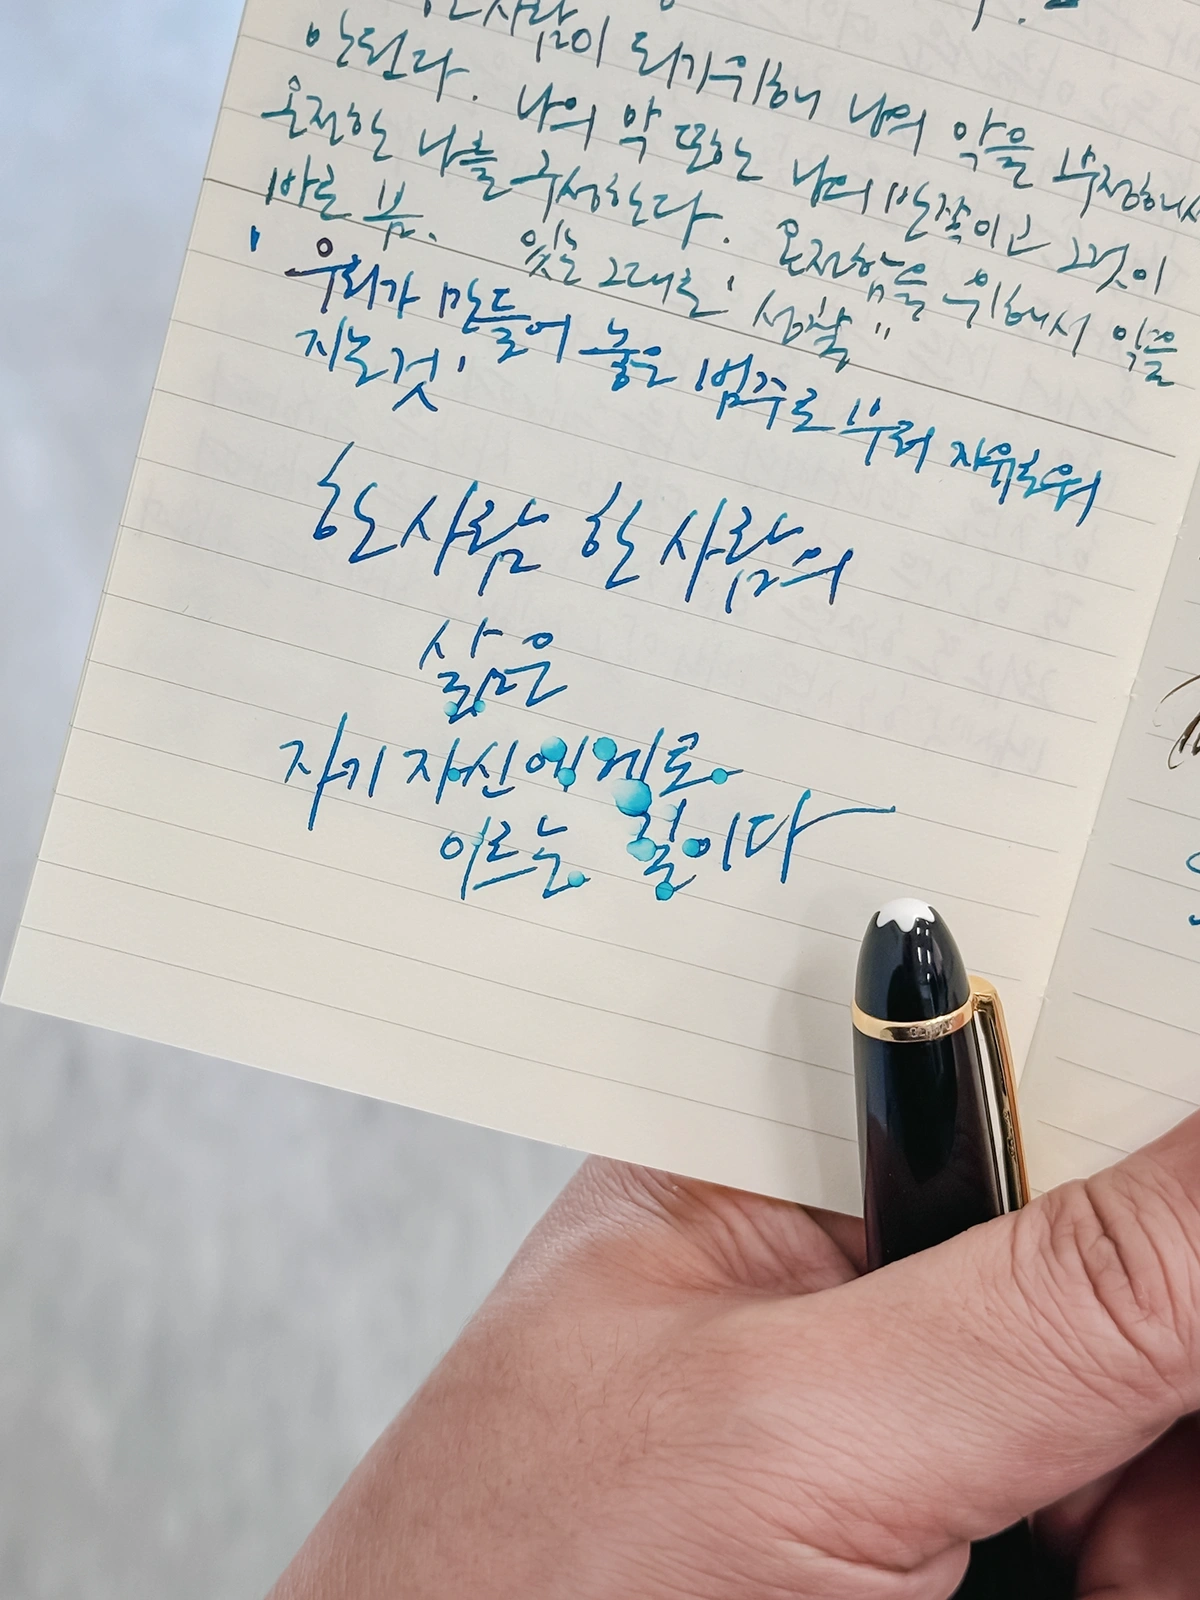 사람이 되기위해 나의 악을 부정해서
안된다. 나의 악 또한 나의 반쪽이고 그것이
온전한 나를 구성한다. 온전함을 위해서 악을
바로 봄. 있는 그대로 "성찰"
' 우리가 만들어 놓은 범주로 부터 자유로워
지는 것'
한 사람 한 사람의
삶은
자기 자신에게로
이르는 길이다